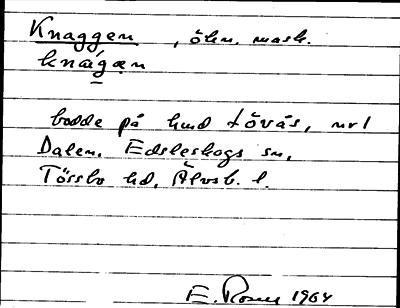 Knaggen, ökn. mask.
knágæn
bodde på hmd Lövås, nr 1
Dalen. Edsleskogs sn,
Tössbo hd, Älvsb. l.
E. Rosen 1964